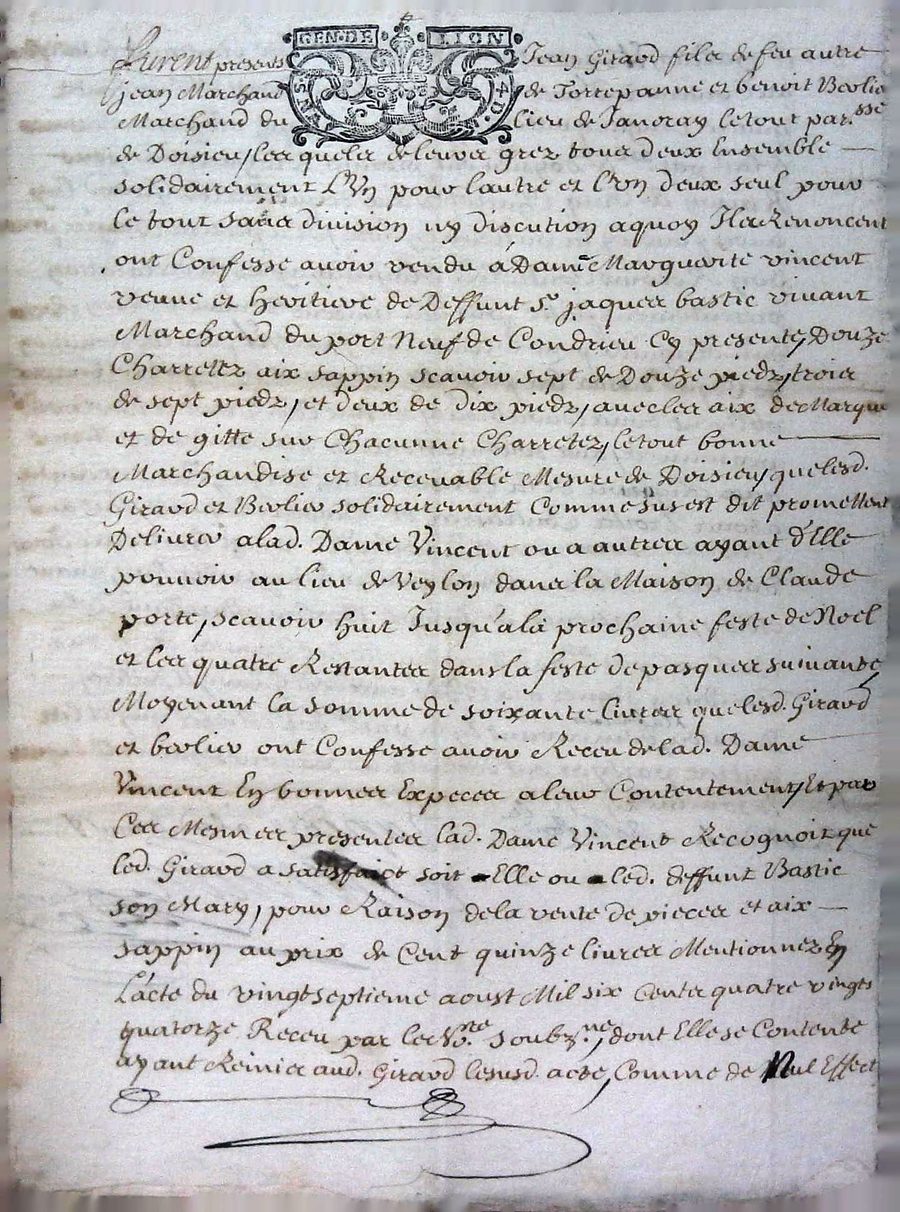 GEN·DE LION
Furent presents Jean Giraud filz de feu autre
jean Marchand de Torrepanne et benoit Berlio
Marchand du lieu de Janoray le tout par.sse
de Doisieu, lesquels de leur grez tous deux Ensemble
solidairement L'Un pour lautre et l'un deux seul pour
le tout sans division ny discution a quoy Ils Renoncent
ont Confesse avoir vendu á Dame Marguerite vincent
veuve et heritiere de Deffunt Sr. jaques bastic vivant
Marchand du port Neuf de Condrieu Cy presente, Douze
Charretez aix sappin scavoir sept de Douze piedz, trois
de sept piedz, et deux de dix piedz, avec les aix de Marque
et de gitte sur Chacunne Charretez, le tout bonne
Marchandise et Recevable Mesure de Doisieu, que lesd.
Giraud et Berlier solidairement Comme sus est dit promettent
Delivrer a lad. Dame Vincent ou a autres ayant d'Elle
pouvoir au lieu de Veylon dans la Maison de Claude
porte, scavoir huit Jusqu'a la prochaine feste de Noel
et les quatre Restantes dans la feste de pasques suivante,
Moyenant la somme de soixante livres que lesd. Giraud
et berlier ont Confesse avoir Receu de lad. Dame
Vincent En bonnes Expeces a leur Contentement, Et par
Ces Mesmes presentes lad. Dame Vincent Recognoit que
led. Giraud a satisfaict soit Elle ou led. deffunt Bastic
son Mary, pour Raison de la vente de pieces et aix
sappin au prix de Cent quinze livres Mentionnez En
L'acte du vingt septieme aoust Mil six Cents quatre vingts
quatorze Receu par le No.re soubz.ne, dont Elle se Contente
ayant Remis aud. Giraud le susd. acte, Comme de Nul Effect